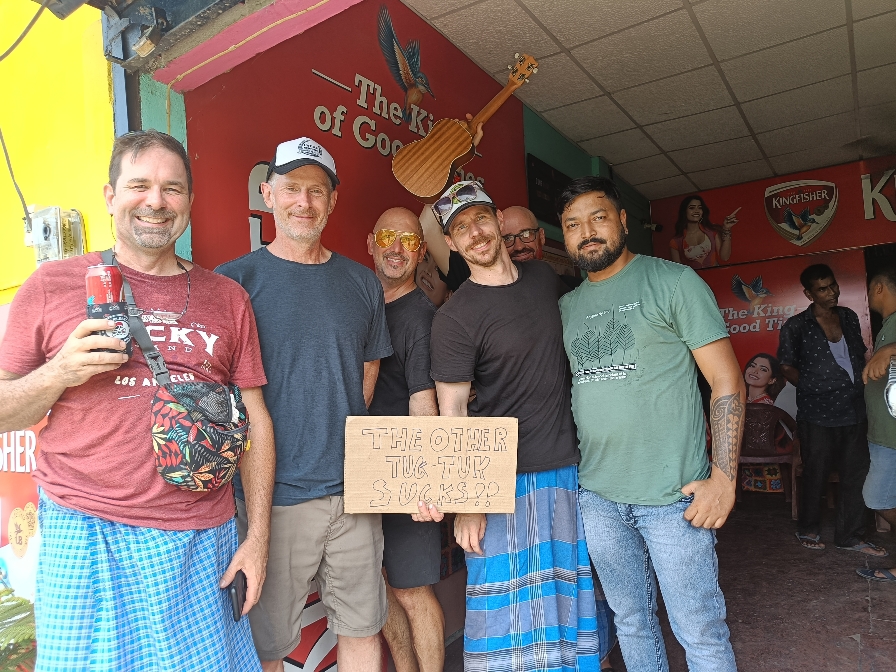 The Ki
of Goo
es
KINGFISHER
K
The King
Good Ti
CKY
IND
LOS ANGELES
SHER
THE OTHER
TUG TUK
SUCKS!?